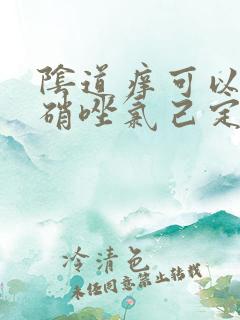 陰道痒可以
硝唑氯己定
冷清色
未经同意禁止转载